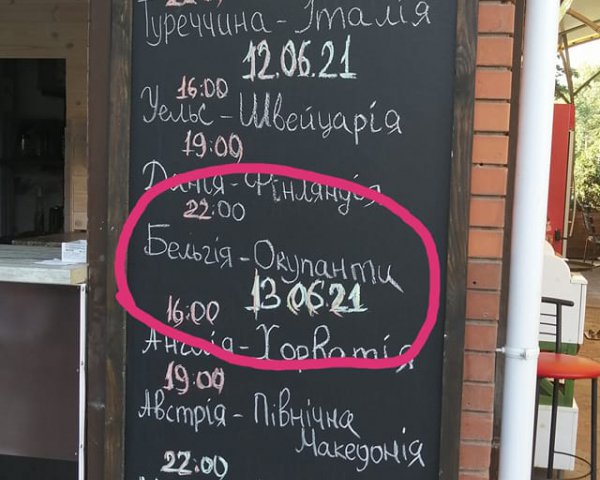 Туреччина - Італія
12.06.21
16:00
Уельс - Швейцарія
19:00
Данія - Фінляндія
22:00
Бельгія - Окупанти
13 06.21
16:00
Англія - Хорватія
19:00
Австрія - Північна
Македонія
22:00